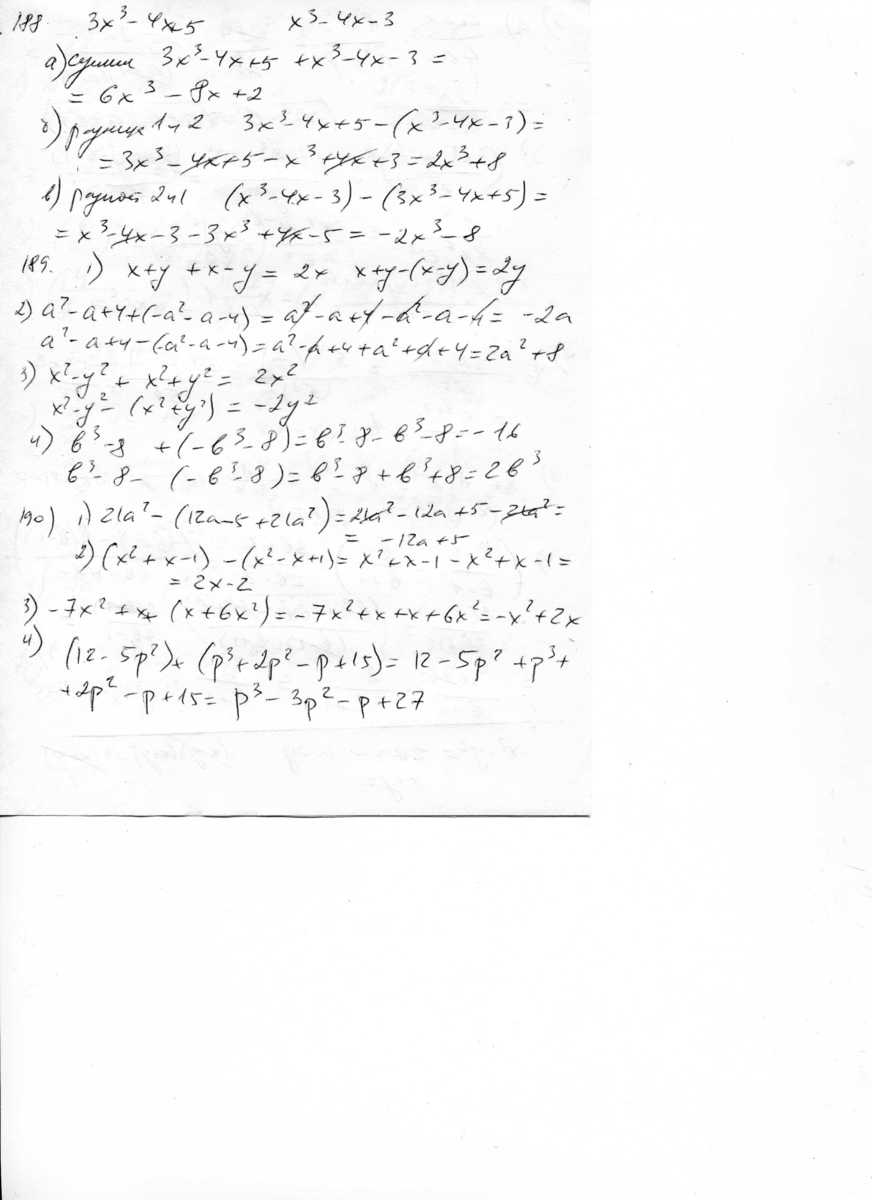 188. 3x³-4x+5 x³-4x-3
а) сумма 3x³-4x+5 +x³-4x-3 =
= 6x³-8x+2
б) разница 1 и 2 3x³-4x+5-(x³-4x-3)=
= 3x³-4x+5-x³+4x+3=2x³+8
в) разност 2 и 1 (x³-4x-3)-(3x³-4x+5)=
= x³-4x-3-3x³+4x-5=-2x³-8
189. 1) x+y +x-y= 2x x+y-(x-y)=2y
2) a²-a+4+(-a²-a-4)=a²-a+4-a²-a-4=-2a
a²-a+4-(-a²-a-4)=a²-a+4+a²+a+4=2a²+8
3) x²-y²+ x²+y²= 2x²
x²-y²-(x²+y²)=-2y²
4) в³-8 +(-в³-8)=в³-8-в³-8=-16
в³-8-(-в³-8)=в³-8+в³+8=2в³
190) 1) 21a²-(12a-5+21a²)=21a²-12a+5-21a²=
= -12a+5
2) (x²+x-1)-(x²-x+1)=x²+x-1-x²+x-1=
= 2x-2
3) -7x²+x+(x+6x²)=-7x²+x+x+6x²=-x²+2x
4) (12-5p²)+(p³+2p²-p+15)=12-5p²+p³+
+2p²-p+15=p³-3p²-p+27